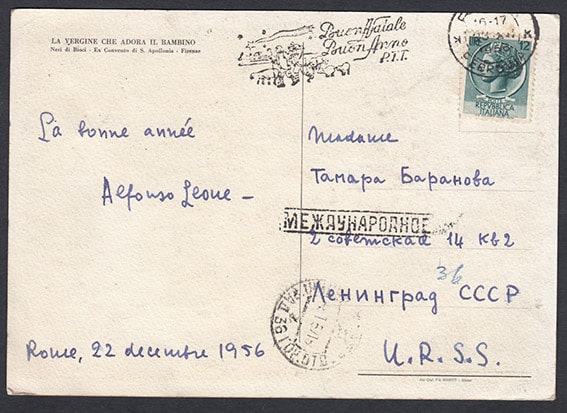 LA VERGINE CHE ADORA IL BAMBINO
Neri di Bicci - Ex Convento di S. Apollonia - Firenze
Buon Natale
Buon Anno
P.T.T.
16-17
12
REPVBBLICA
ITALIANA
La bonne année
Alfonso Leone -
Rome, 22 decembre 1956
Madame
Тамара Баранова
МЕЖДУНАРОДНОЕ
2 советская 14 кв 2
36
Ленинград СССР
U.R.S.S.